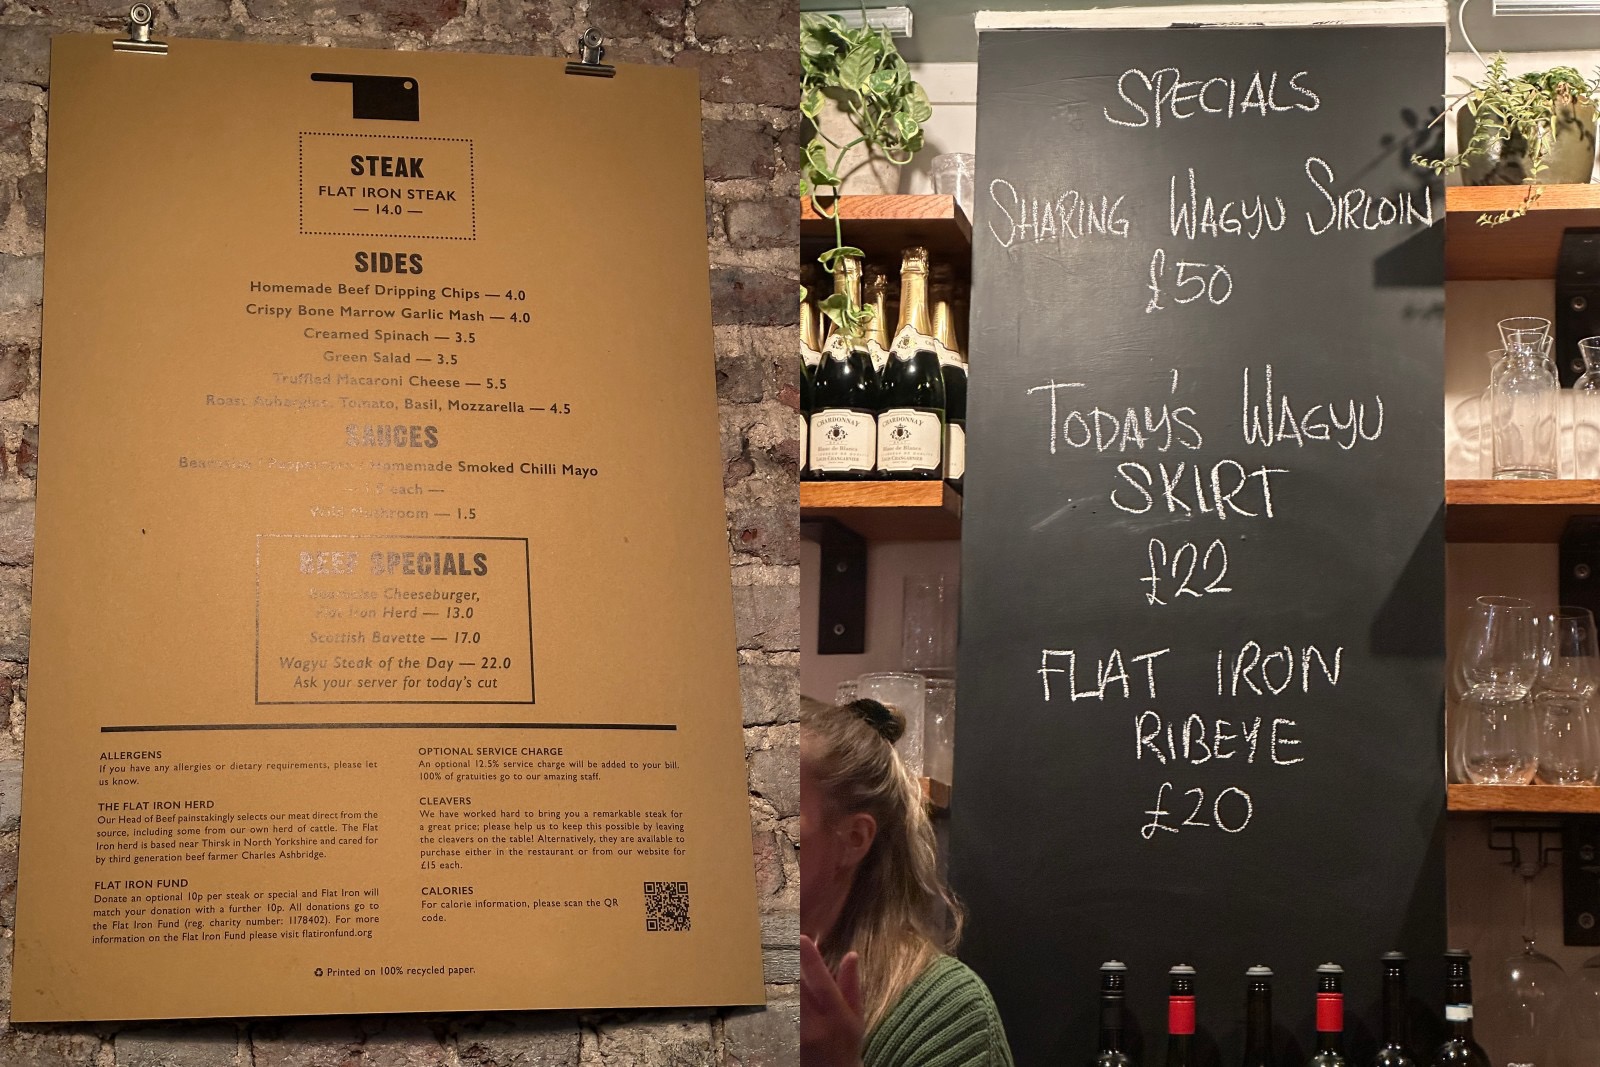 STEAK
FLAT IRON STEAK
— 14.0 —
SIDES
Homemade Beef Dripping Chips — 4.0
Crispy Bone Marrow Garlic Mash — 4.0
Creamed Spinach — 3.5
Green Salad — 3.5
Truffled Macaroni Cheese — 5.5
Roast Aubergine, Tomato, Basil, Mozzarella — 4.5
SAUCES
Bearnaise / Peppercorn / Homemade Smoked Chilli Mayo
each —
Wild Mushroom — 1.5
BEEF SPECIALS
Bearnaise Cheeseburger,
Flat Iron Herd — 13.0
Scottish Bavette — 17.0
Wagyu Steak of the Day — 22.0
Ask your server for today's cut
ALLERGENS
If you have any allergies or dietary requirements, please let
us know.
THE FLAT IRON HERD
Our Head of Beef painstakingly selects our meat direct from the
source, including some from our own herd of cattle. The Flat
Iron herd is based near Thirsk in North Yorkshire and cared for
by third generation beef farmer Charles Ashbridge.
FLAT IRON FUND
Donate an optional 10p per steak or special and Flat Iron will
match your donation with a further 10p. All donations go to
the Flat Iron Fund (reg. charity number: 1178402). For more
information on the Flat Iron Fund please visit flatironfund.org
OPTIONAL SERVICE CHARGE
An optional 12.5% service charge will be added to your bill.
100% of gratuities go to our amazing staff.
CLEAVERS
We have worked hard to bring you a remarkable steak for
a great price; please help us to keep this possible by leaving
the cleavers on the table! Alternatively, they are available to
purchase either in the restaurant or from our website for
£15 each.
CALORIES
For calorie information, please scan the QR
code.
Printed on 100% recycled paper.
SPECIALS
SHARING WAGYU SIRLOIN
£50
TODAY'S WAGYU
SKIRT
£22
FLAT IRON
RIBEYE
£20
CHARDONNAY
Blanc de Blancs
CHARDONNAY
Blanc de Blancs